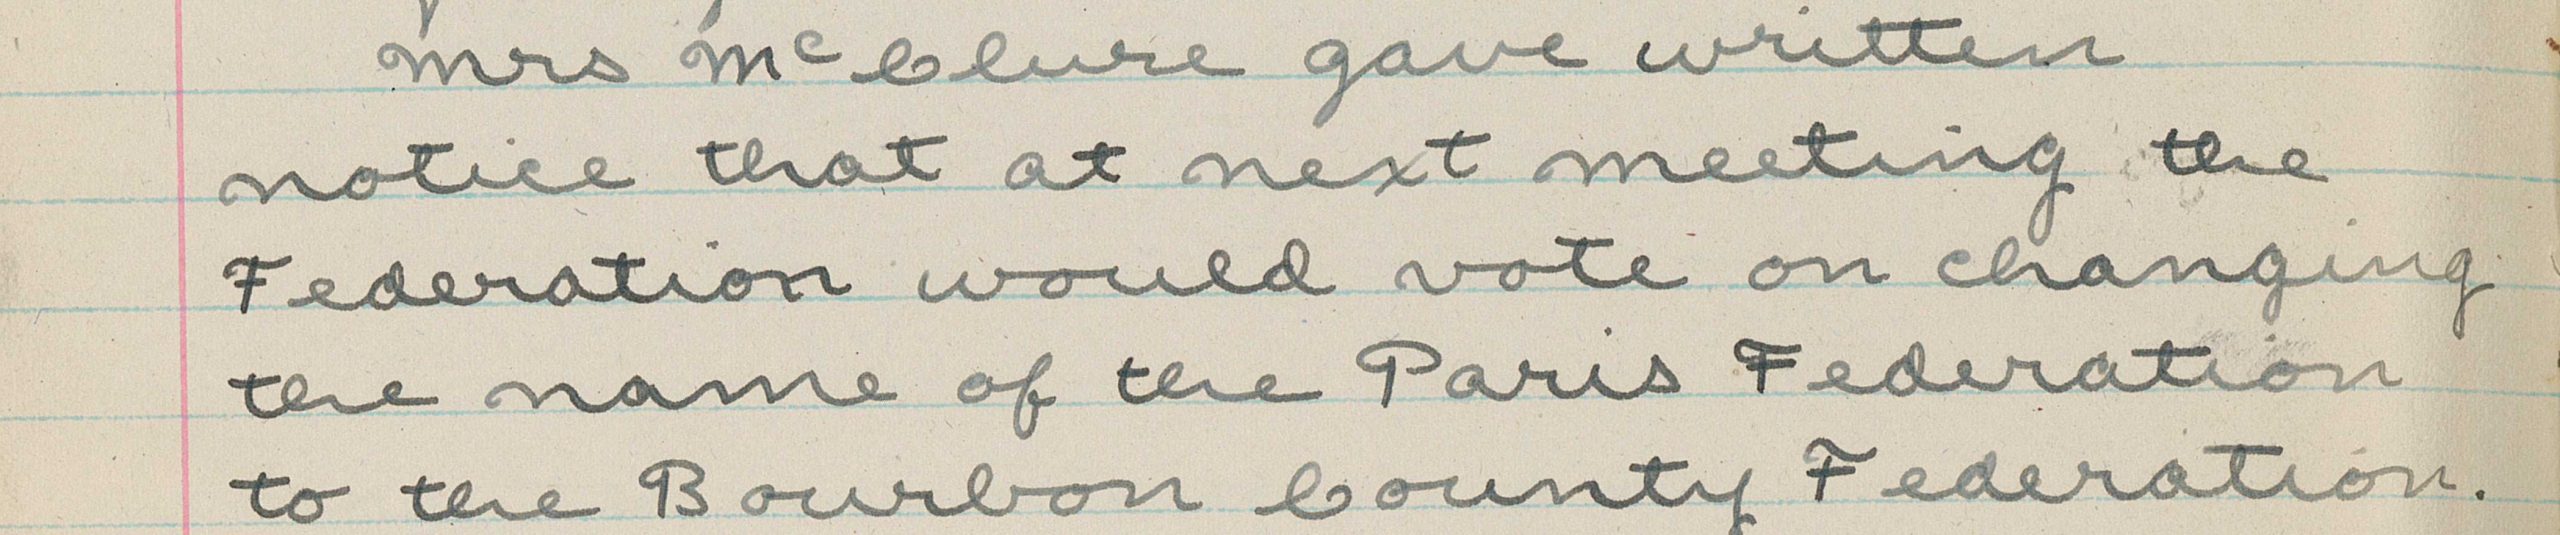 Mrs McClure gave written
notice that at next meeting the
Federation would vote on changing
the name of the Paris Federation
to the Bourbon County Federation.